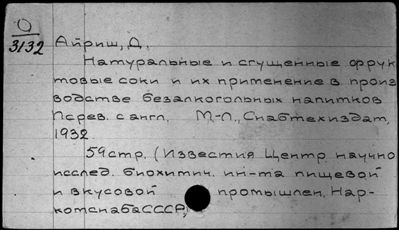 О
3132
Айриш, Д.
Натуральные и сгущенные фрук
товые соки и их применение в произ
водстве безалкогольных напитков
Перев. с англ. М-Л., Снабтехиздат,
1932
59 стр. (Известия Центр. научно
исслед. биохимич. ин-та пищевой
и вкусовой промышлен. Нар-
комснаба СССР,